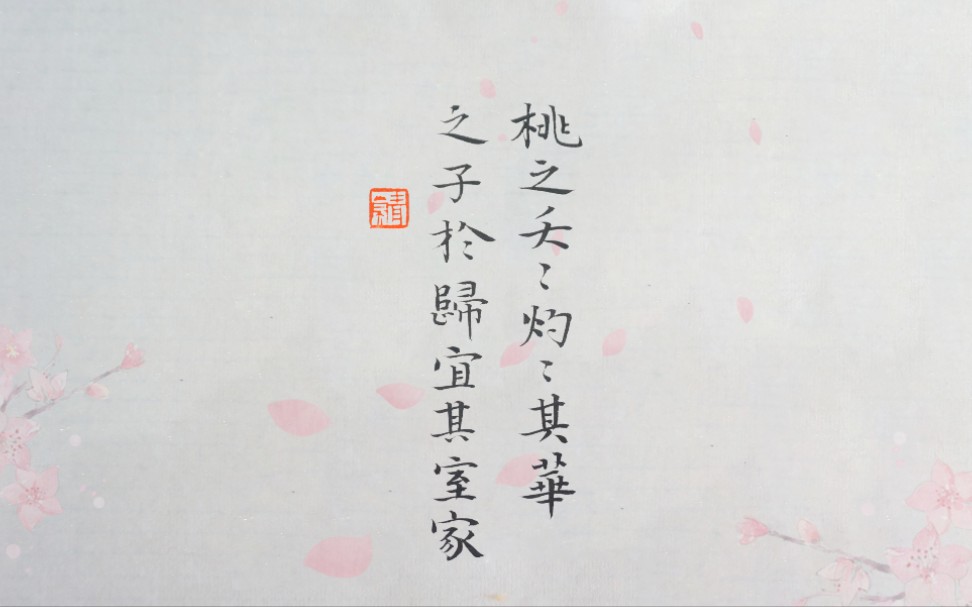 桃之夭〻灼〻其華
之子於歸宜其室家